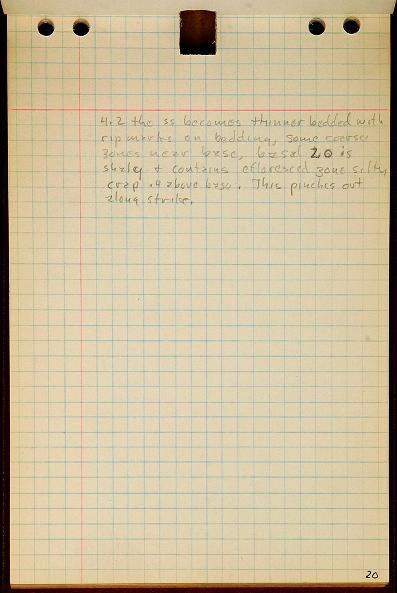 4.2 the ss becomes thinner bedded with
rip marks on bedding, some coarse
zones near base, basal 20 is
shaley + contains efloresced zone silty
crap .4 above base. This pinches out
along strike.
20